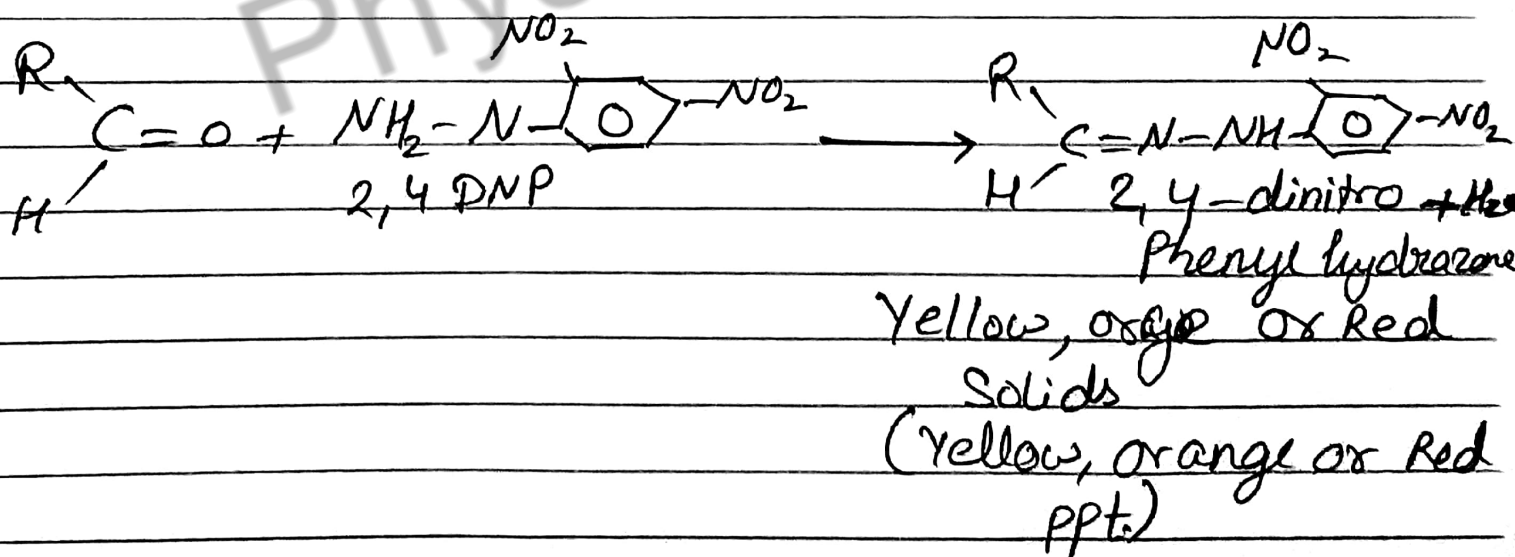 Phy
NO2 NO2
R R
C=O + NH2-N- -NO2 → C=N-NH- -NO2
H 2,4 DNP H 2,4-dinitro + H2O
Phenyl hydrazone
Yellow, orage or Red
Solids
(Yellow, orange or Red
ppt.)